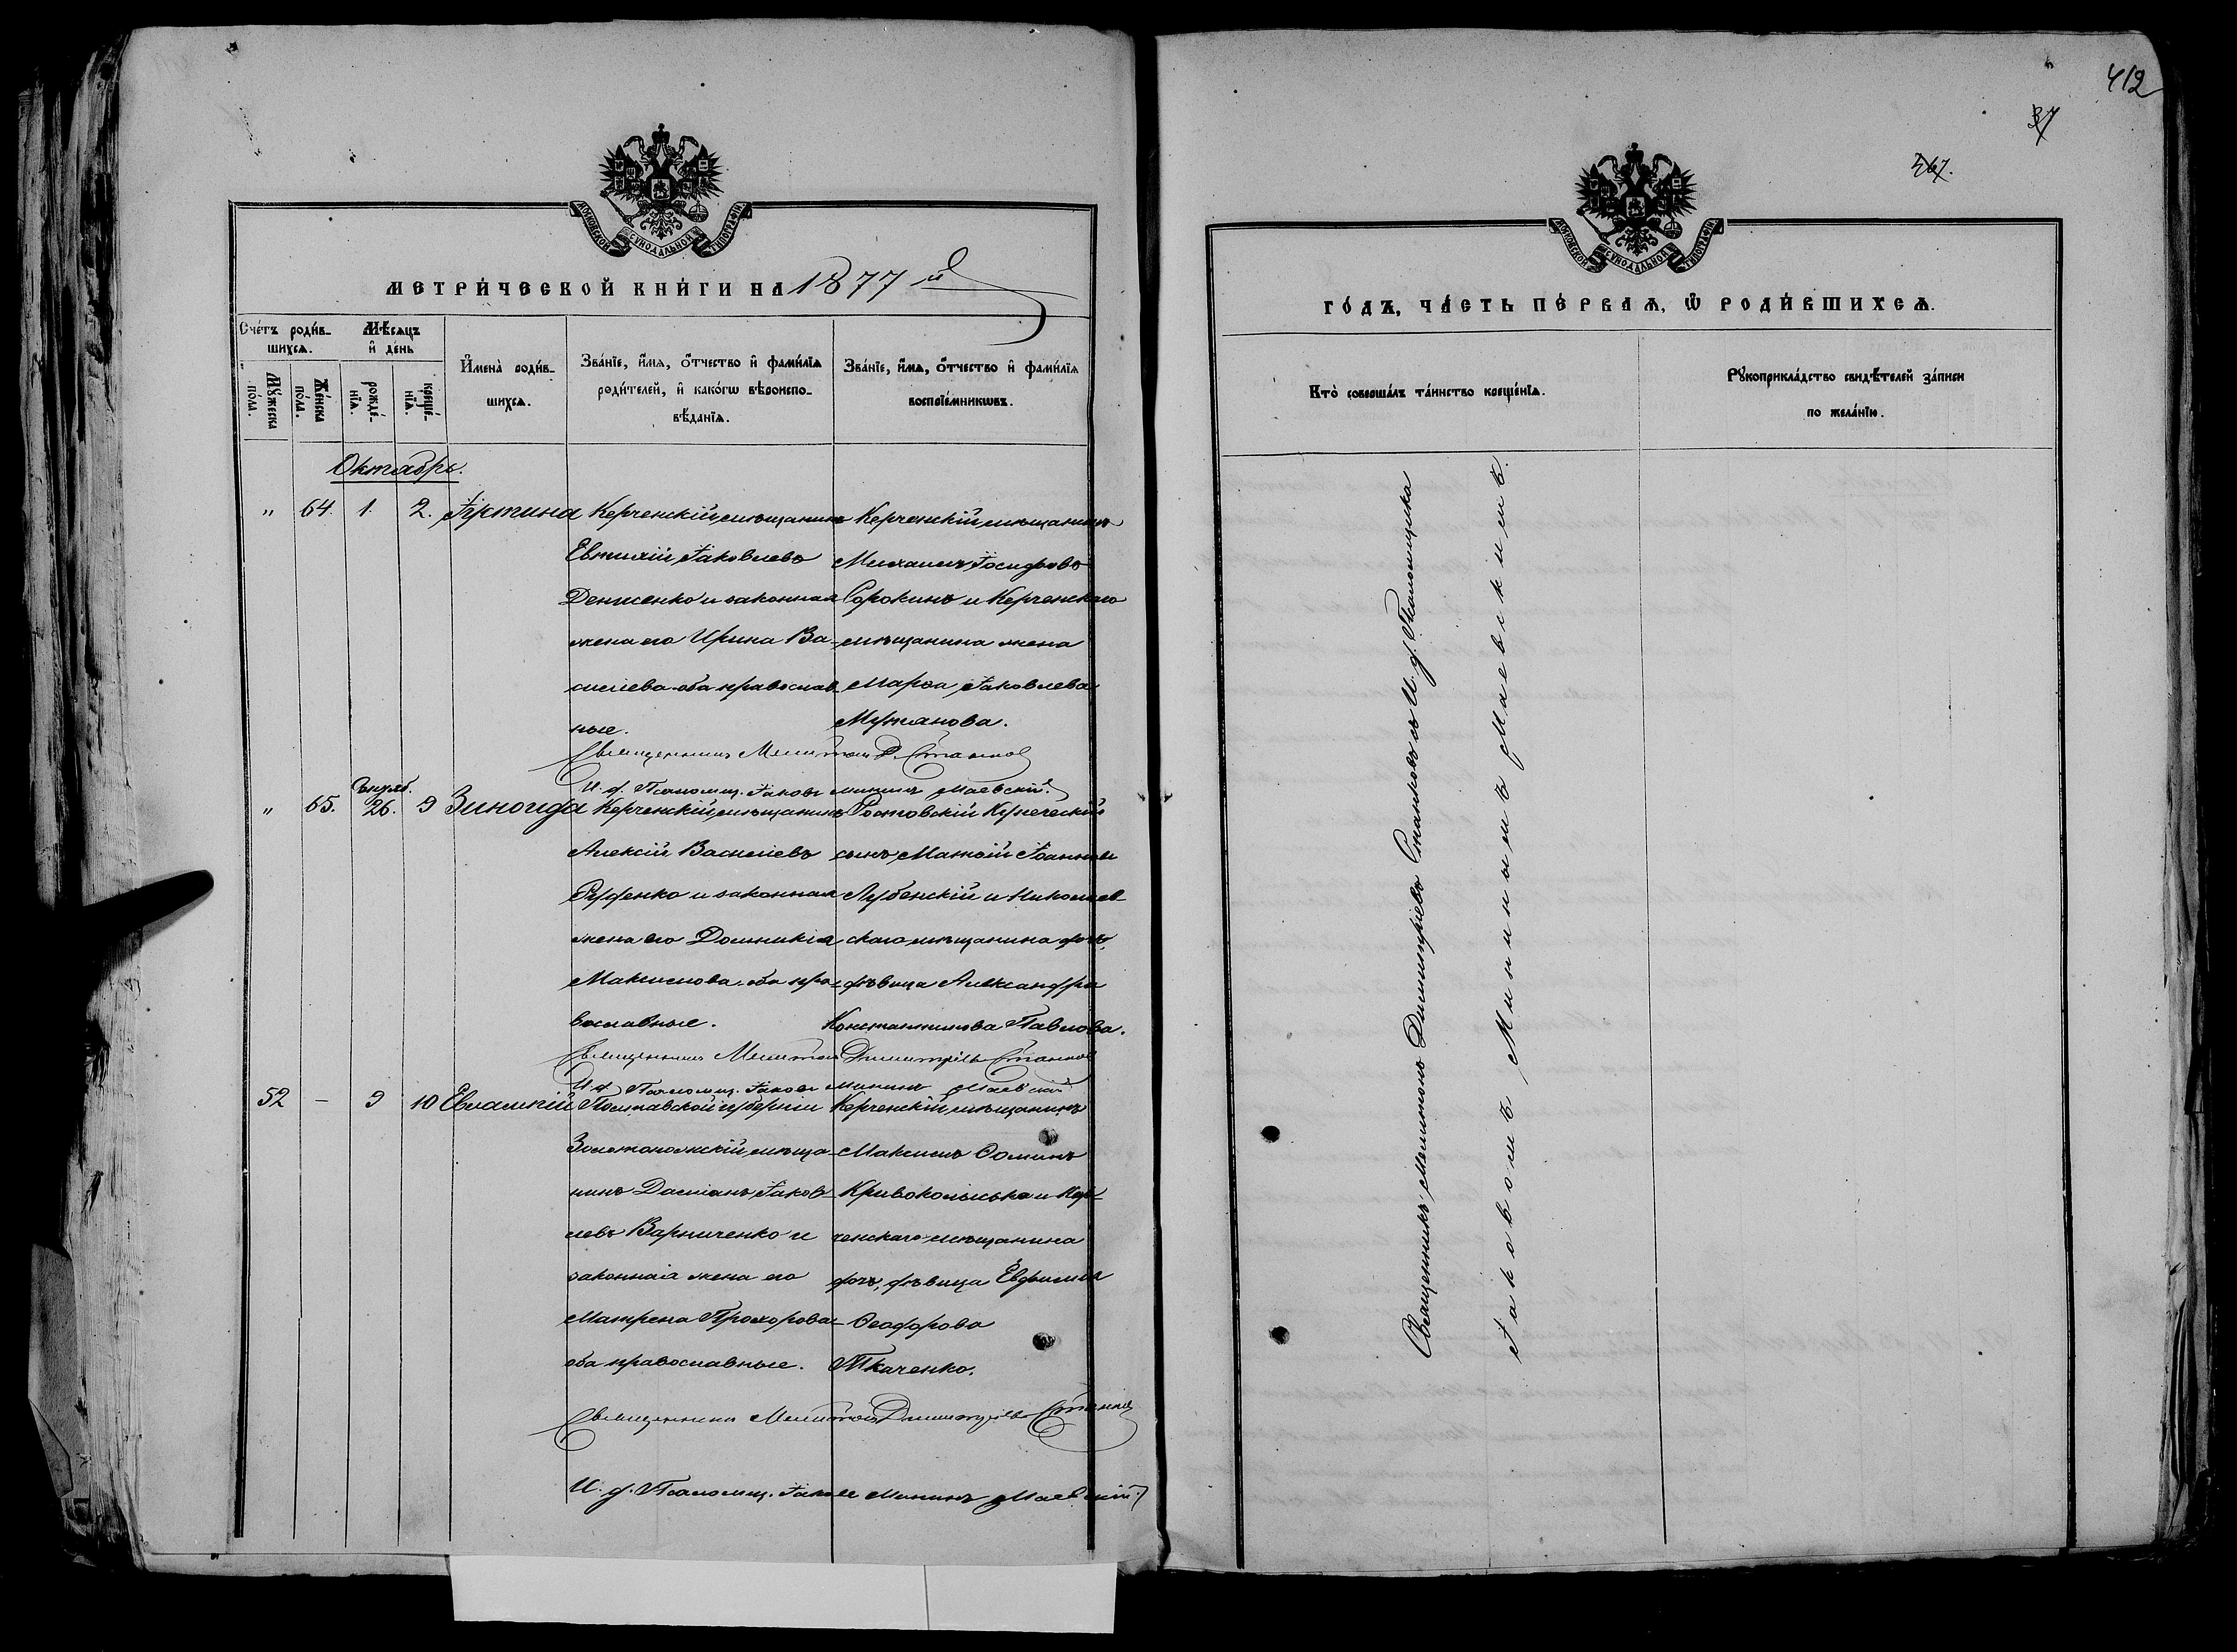 412
37
367.
МОСКОВСКОЙ СѴНОДАЛЬНОЙ ТИПОГРАФІИ
МЕТРИ́ЧЕСКОЙ КНИ́ГИ НА 1877 й
Сче́тъ роди́вшихсѧ.
Мꙋ́жеска по́ла.
Же́нска по́ла.
Мѣ́сѧцъ и҆ де́нь
рожде́нїѧ.
креще́нїѧ.
И҆мена̀ роди́вшихсѧ.
Зва́нїе, и҆́мѧ, ѻ҆́тчество и҆ фами́лїѧ
роди́телей, и҆ како́гѡ вѣроиспо-
вѣ́данїѧ.
Зва́нїе, и҆́мѧ, ѻ҆́тчество и҆ фами́лїѧ
воспрїе́мникѡвъ.
Октябрь.
" 64. 1. 2. Іустина
Керченскій мѣщанинъ
Евтихій Іаковлевъ
Денисенко и законная
жена его Ирина Ва-
силіева оба православ-
ные.
Керченскій мѣщанинъ
Михаилъ Іосифовъ
Сорокинъ и Керченскаго
мѣщанина жена
Марѳа Іаковлева
Мужанова.
Священникъ Мелитонъ Д. Станковъ
И. д. Псаломщ. Іаковъ Мининъ Маевскій.
" 65. 26. 9 Зиноида
Керченскій мѣщанинъ
Алексій Василіевъ
Руденко и законная
жена его Домникія
Максимова оба пра-
вославные.
Ростовскій Купеческій
сынъ Матѳій Іоанновъ
Лубенскій и Николаев-
скаго мѣщанина дочь,
дѣвица Александра
Константинова Павлова.
Священникъ Мелитонъ Димитріевъ Станковъ
И. д. Псаломщ. Іаковъ Мининъ Маевскій
52 – 9 10 Евлампій
Полтавской губерніи
Золотоножскій мѣща-
нинъ Даміанъ Іаков-
левъ Варниченко и
законная жена его
Матрена Прохорова
оба православные.
Керченскій мѣщанинъ
Максимъ Ѳоминъ
Кривоколысько и Кер-
ченскаго мѣщанина
дочь, дѣвица Евфимія
Ѳеодорова
Ткаченко.
Священникъ Мелитонъ Димитріевъ Станковъ
И. д. Псаломщ. Іаковъ Мининъ Маевскій.
МОСКОВСКОЙ СѴНОДАЛЬНОЙ ТИПОГРАФІИ
ГО́ДЪ, ЧА́СТЬ ПЕ́РВАѦ, Ѽ РОДИ́ВШИХСѦ.
Кто̀ соверша́лъ та́инство креще́нїѧ.
Рꙋкоприкла́дство свидѣ́телей за́писи
по жела́нїю.
Священникъ Мелитонъ Димитріевъ Станковъ съ И. д. Псаломщика
Іаковомъ Мининымъ Маевскимъ.